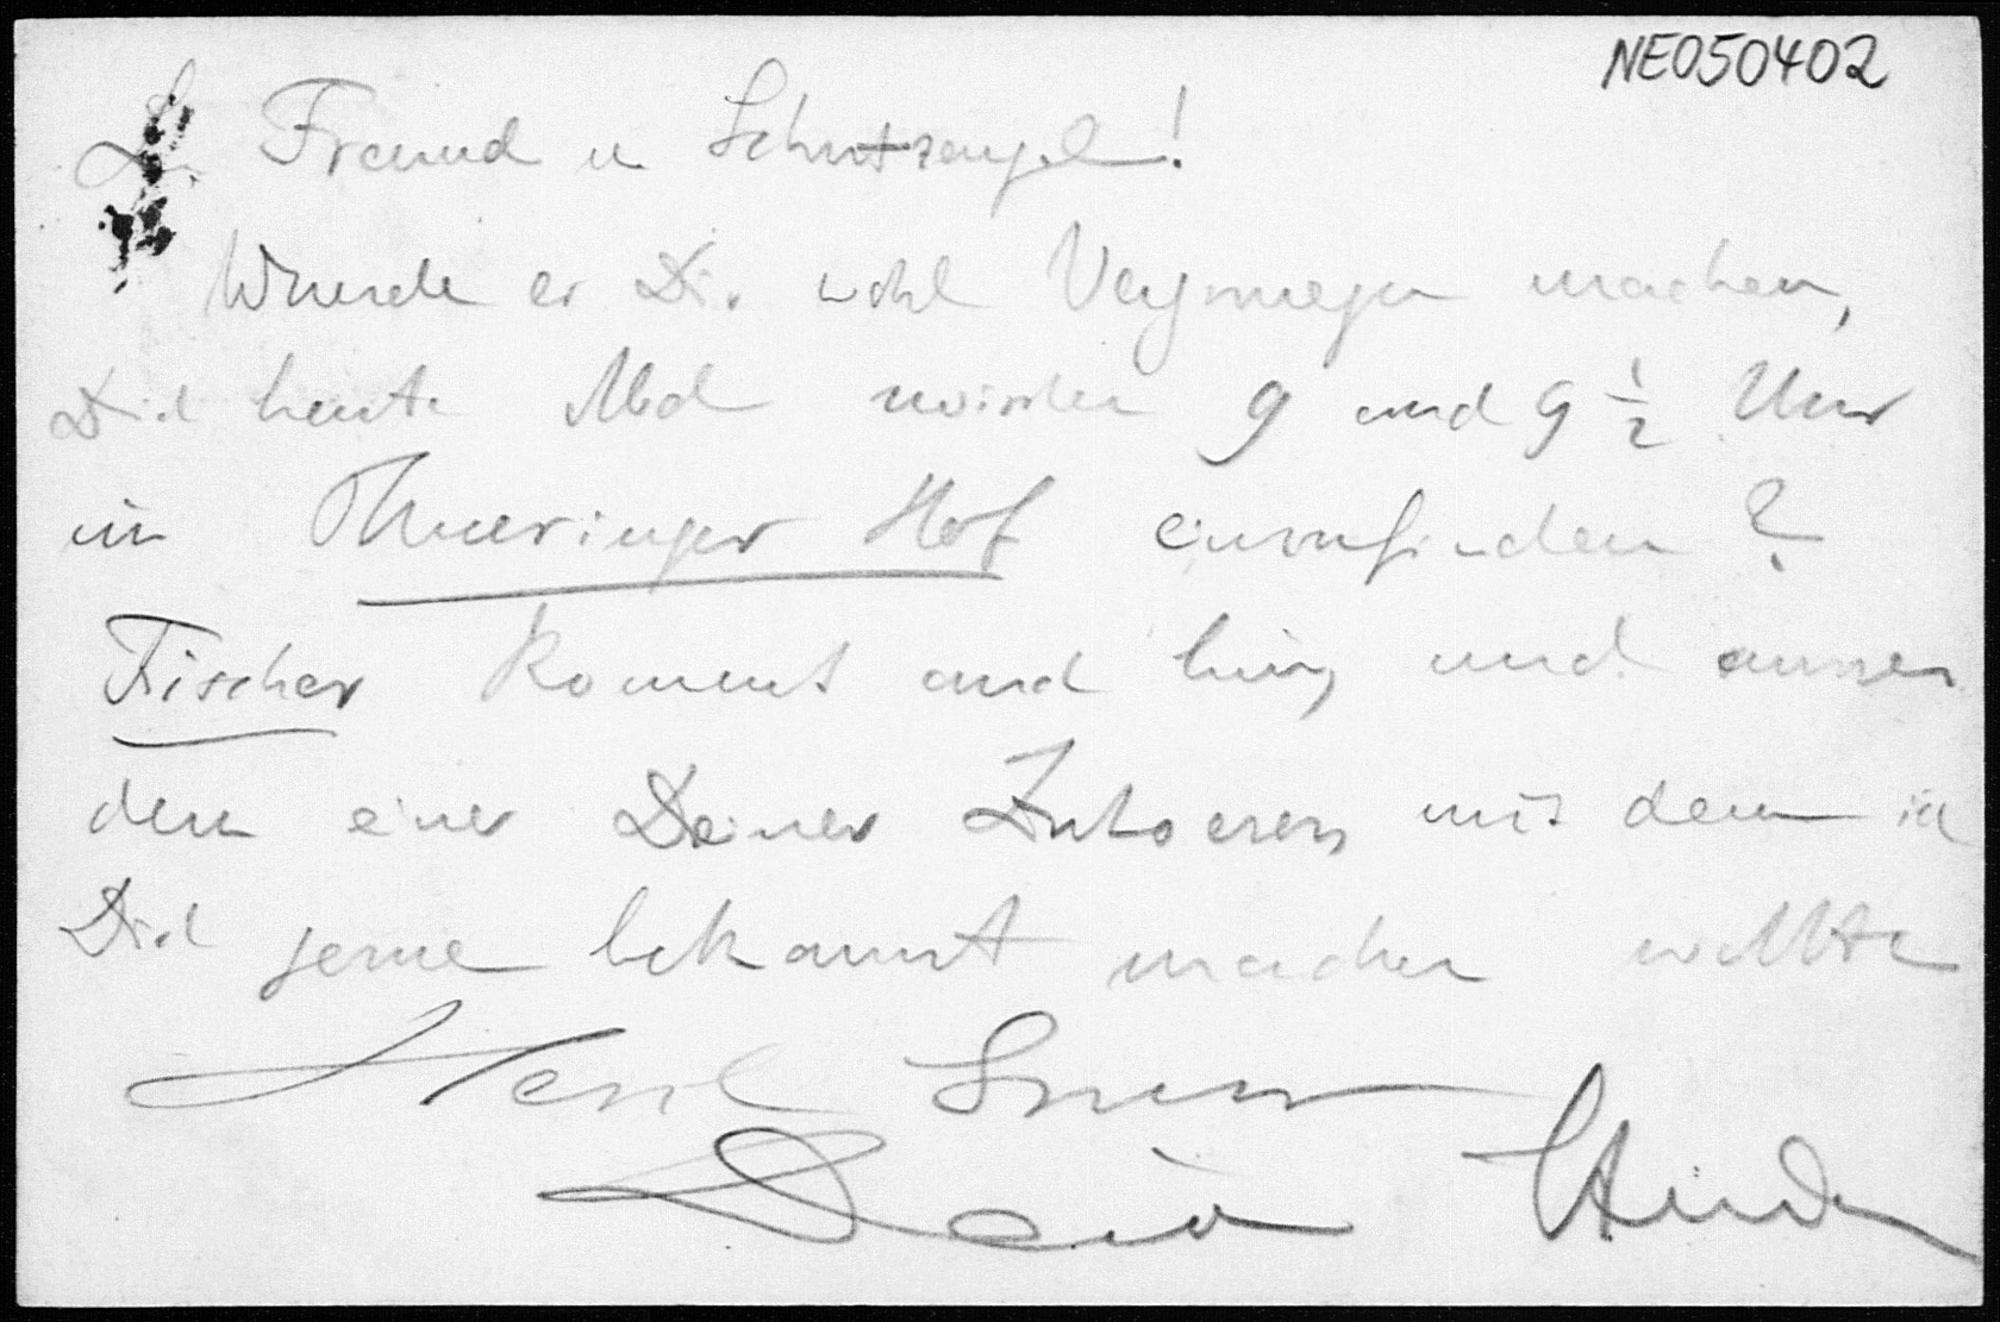 NE050402
L. Freund u Schutzengel!
Wuerde es Dir wohl Vergnuegen machen,
Dich heute Abd zwischen 9 und 9 1/2 Uhr
im Thueringer Hof einzufinden?
Fischer kommt auch hin, und ausser
dem einer Deiner Zuhoerer, mit dem ich
Dich gerne bekannt machen wollte
Herzl Gruss
Dein